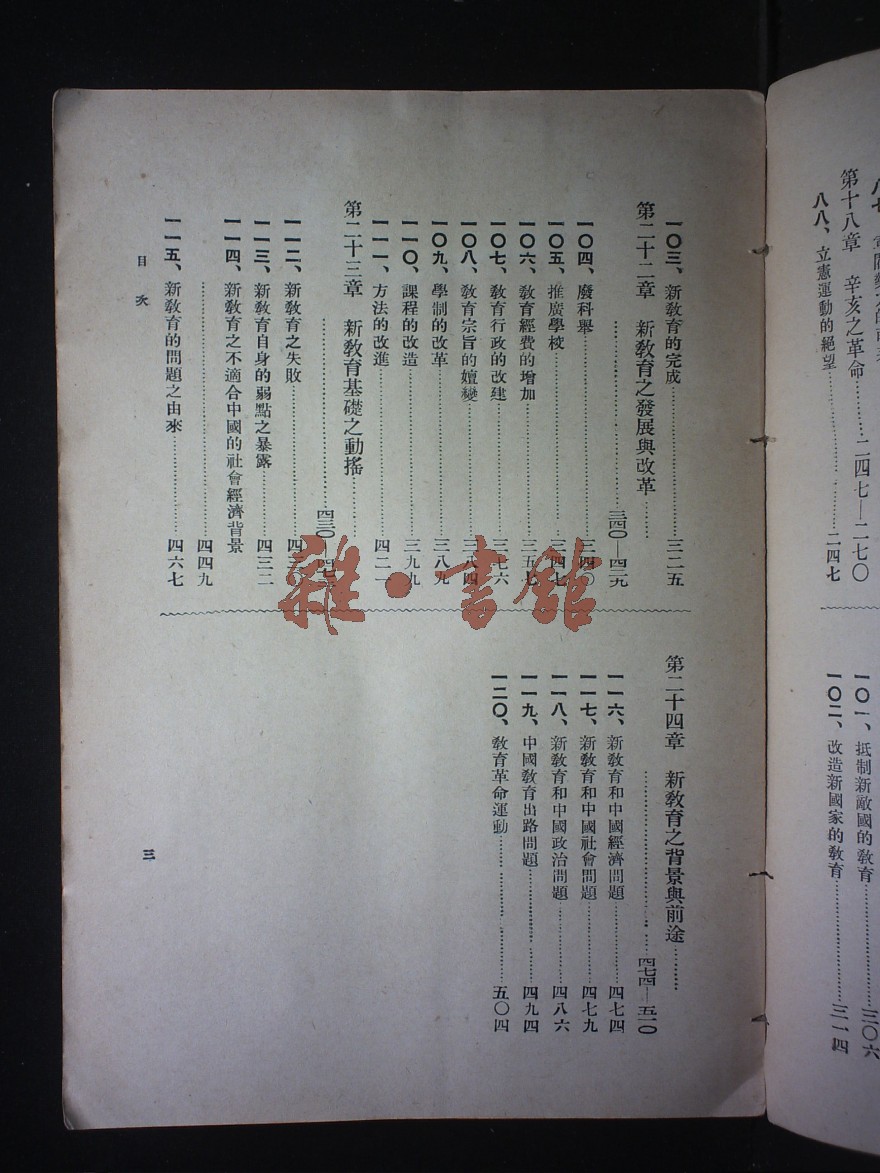 第十八章 辛亥之革命………二四七—二七〇
八八、立憲運動的絕望………二四七
一〇一、抵制新敵國的敎育………三〇六
一〇二、改造新國家的敎育………三一四
一〇三、新敎育的完成………三二五
第二十二章 新敎育之發展與改革………
………三四〇—四二九
一〇四、廢科舉………三四〇
一〇五、推廣學校………三四七
一〇六、敎育經費的增加………三五七
一〇七、敎育行政的改建………三七六
一〇八、敎育宗旨的嬗變………三八四
一〇九、學制的改革………三八九
一一〇、課程的改造………三九九
一一一、方法的改進………四二一
第二十三章 新敎育基礎之動搖………
………四三〇
一一二、新敎育之失敗………
一一三、新敎育自身的弱點之暴露………四三二
一一四、新敎育之不適合中國的社會經濟背景
………四四九
一一五、新敎育的問題之由來………四六七
第二十四章 新敎育之背景與前途………
………四七四—五一〇
一一六、新敎育和中國經濟問題………四七四
一一七、新敎育和中國社會問題………四七九
一一八、新敎育和中國政治問題………四八六
一一九、中國敎育出路問題………四九四
一二〇、敎育革命運動………五〇四
目次
三
雜·書館